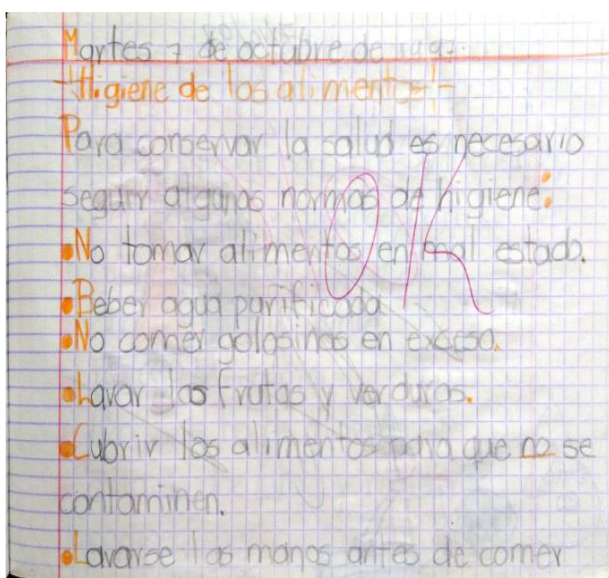 Martes 7 de octubre de 1997.
-"Higiene de los alimentos"-
Para conservar la salud es necesario
seguir algunas normas de higiene:
•No tomar alimentos en mal estado.
•Beber agua purificada
•No comer golosinas en exceso.
•Lavar las frutas y verduras.
•Cubrir los alimentos para que no se
contaminen.
•Lavarse las manos antes de comer
OK